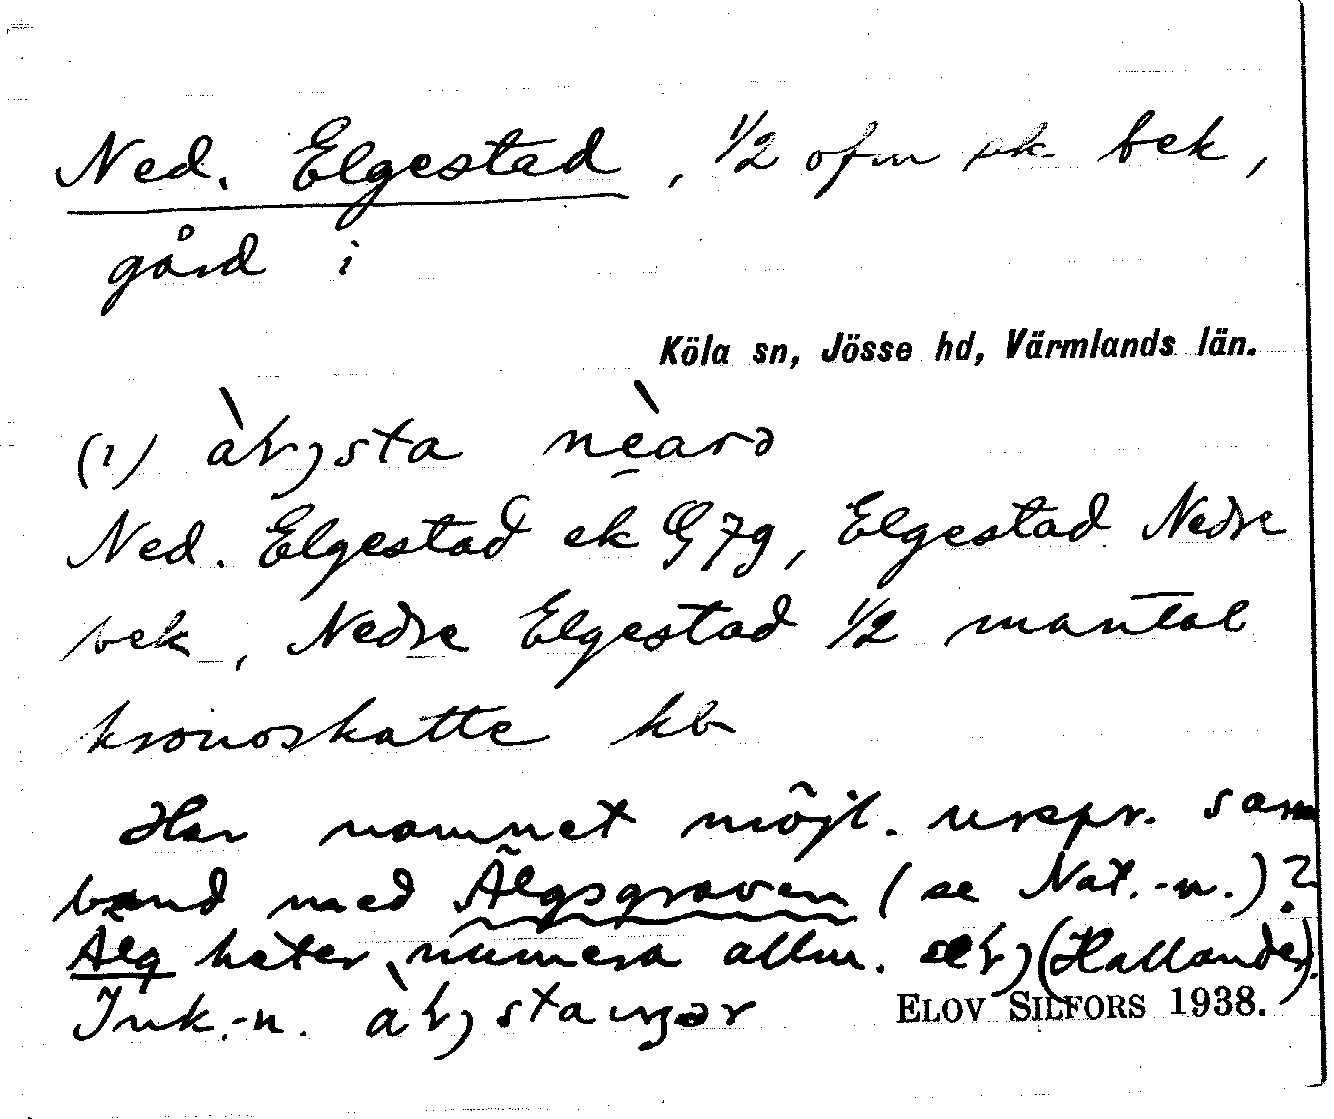 Ned. Elgestad, 1/2 ofm sk bek,
gård i
Köla sn, Jösse hd, Värmlands län.
(1)
Ned. Elgestad ek G7g, Elgestad Nedre
bek, Nedre Elgestad 1/2 mantal
kronoskatte kb
Har namnet möjl. urspr. sam
band med Älgsgraven (se Nat.-n.)?
Älg heter numera allm. (Hallander).
Ink.-n.
ELOV SILFORS 1938.